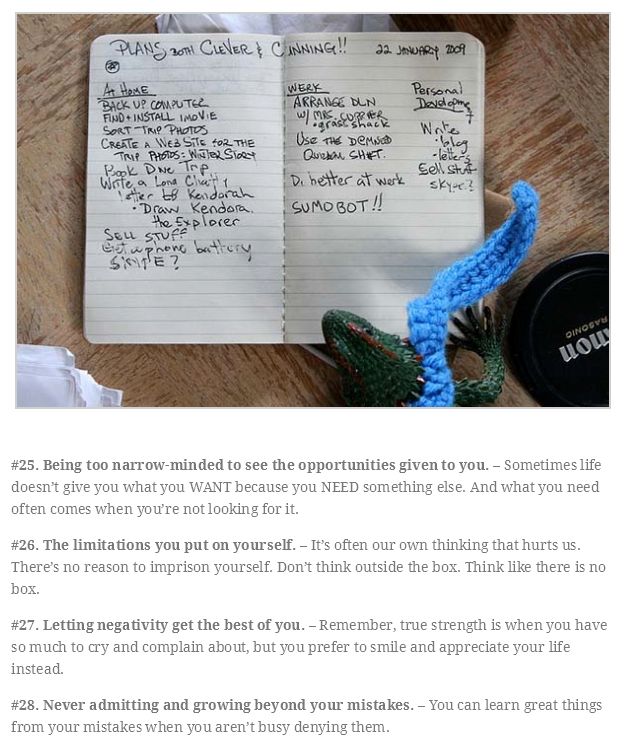 PLANS BOTH CLEVER & CUNNING!! 22 JANUARY 2009
AT HOME
BACK UP COMPUTER
FIND + INSTALL IMOVIE
SORT TRIP PHOTOS
CREATE A WEBSITE FOR THE
TRIP PHOTOS: WINTER STORY
Book Dive Trip
Write a Long Chatty
letter to Kendorah
• Draw Kendora
the Explorer
SELL STUFF
Get a phone battery
SKYPE?
WERK
ARRANGE DLN
w/ MRS.
• grass shack
USE THE DEMNED
SH*T.
Do better at werk
SUMOBOT!!
Personal
Write
• blog
• letters
Sell stuff
Skype?
#25. Being too narrow-minded to see the opportunities given to you. – Sometimes life
doesn’t give you what you WANT because you NEED something else. And what you need
often comes when you’re not looking for it.
#26. The limitations you put on yourself. – It’s often our own thinking that hurts us.
There’s no reason to imprison yourself. Don’t think outside the box. Think like there is no
box.
#27. Letting negativity get the best of you. – Remember, true strength is when you have
so much to cry and complain about, but you prefer to smile and appreciate your life
instead.
#28. Never admitting and growing beyond your mistakes. – You can learn great things
from your mistakes when you aren’t busy denying them.